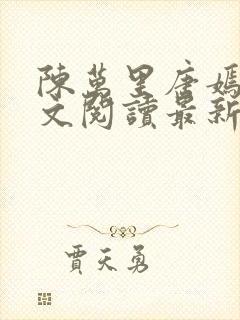 陳萬里唐嫣
文閱讀最新
賈天勇